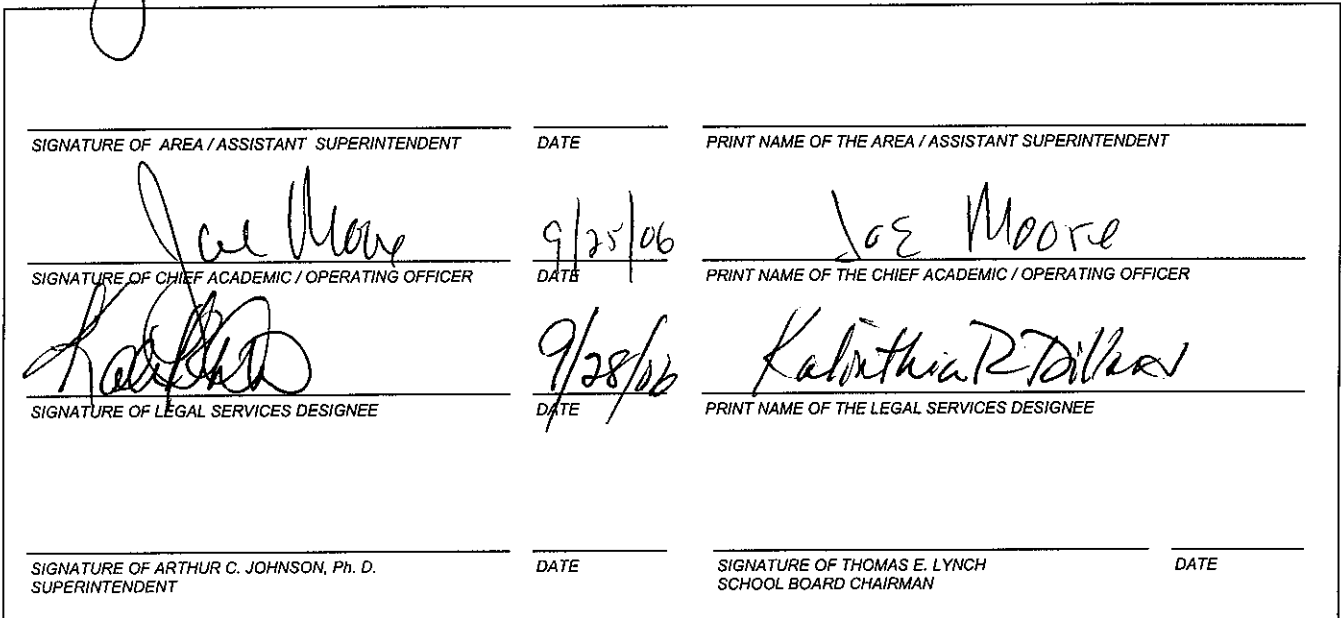 SIGNATURE OF AREA / ASSISTANT SUPERINTENDENT DATE PRINT NAME OF THE AREA / ASSISTANT SUPERINTENDENT
Joe Moore 9/25/06 Joe Moore
SIGNATURE OF CHIEF ACADEMIC / OPERATING OFFICER DATE PRINT NAME OF THE CHIEF ACADEMIC / OPERATING OFFICER
9/28/06 Kalinthia R Dillard
SIGNATURE OF LEGAL SERVICES DESIGNEE DATE PRINT NAME OF THE LEGAL SERVICES DESIGNEE
SIGNATURE OF ARTHUR C. JOHNSON, Ph. D. DATE SIGNATURE OF THOMAS E. LYNCH DATE
SUPERINTENDENT SCHOOL BOARD CHAIRMAN